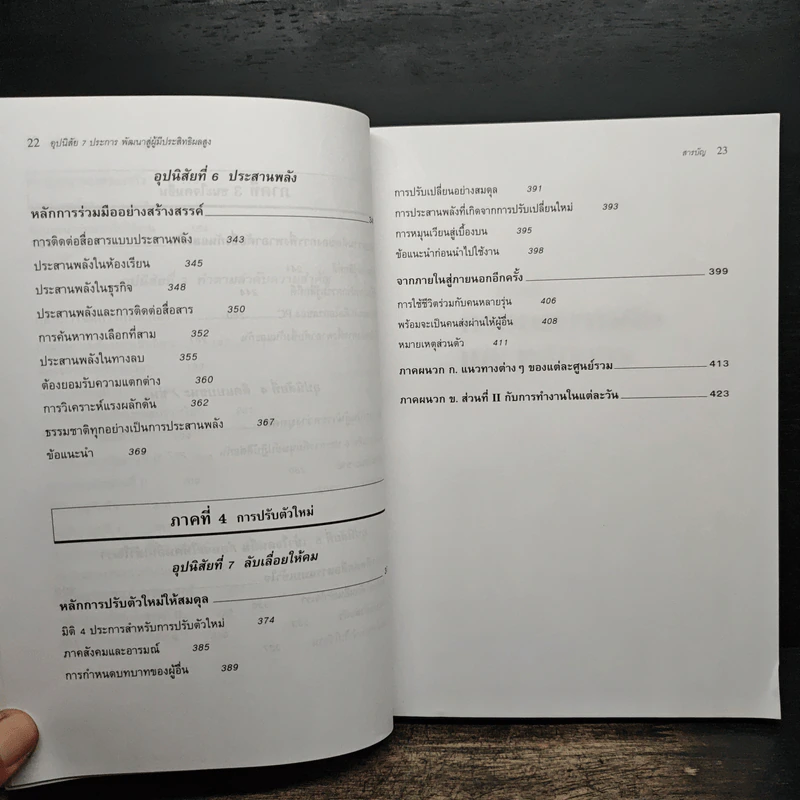 22 อุปนิสัย 7 ประการ พัฒนาสู่ผู้มีประสิทธิผลสูง
อุปนิสัยที่ 6 ประสานพลัง
หลักการร่วมมืออย่างสร้างสรรค์
การติดต่อสื่อสารแบบประสานพลัง 343
ประสานพลังในห้องเรียน 345
ประสานพลังในธุรกิจ 348
ประสานพลังและการติดต่อสื่อสาร 350
การค้นหาทางเลือกที่สาม 352
ประสานพลังในทางลบ 355
ต้องยอมรับความแตกต่าง 360
การวิเคราะห์แรงผลักดัน 362
ธรรมชาติทุกอย่างเป็นการประสานพลัง 367
ข้อแนะนำ 369
ภาคที่ 4 การปรับตัวใหม่
อุปนิสัยที่ 7 ลับเลื่อยให้คม
หลักการปรับตัวใหม่ให้สมดุล
มิติ 4 ประการสำหรับการปรับตัวใหม่ 374
ภาคสังคมและอารมณ์ 385
การกำหนดบทบาทของผู้อื่น 389
สารบัญ 23
การปรับเปลี่ยนอย่างสมดุล 391
การประสานพลังที่เกิดจากการปรับเปลี่ยนใหม่ 393
การหมุนเวียนสู่เบื้องบน 395
ข้อแนะนำก่อนนำไปใช้งาน 398
จากภายในสู่ภายนอกอีกครั้ง 399
การใช้ชีวิตร่วมกับคนหลายรุ่น 406
พร้อมจะเป็นคนส่งผ่านให้ผู้อื่น 408
หมายเหตุส่วนตัว 411
ภาคผนวก ก. แนวทางต่างๆ ของแต่ละศูนย์รวม 413
ภาคผนวก ข. ส่วนที่ II กับการทำงานในแต่ละวัน 423